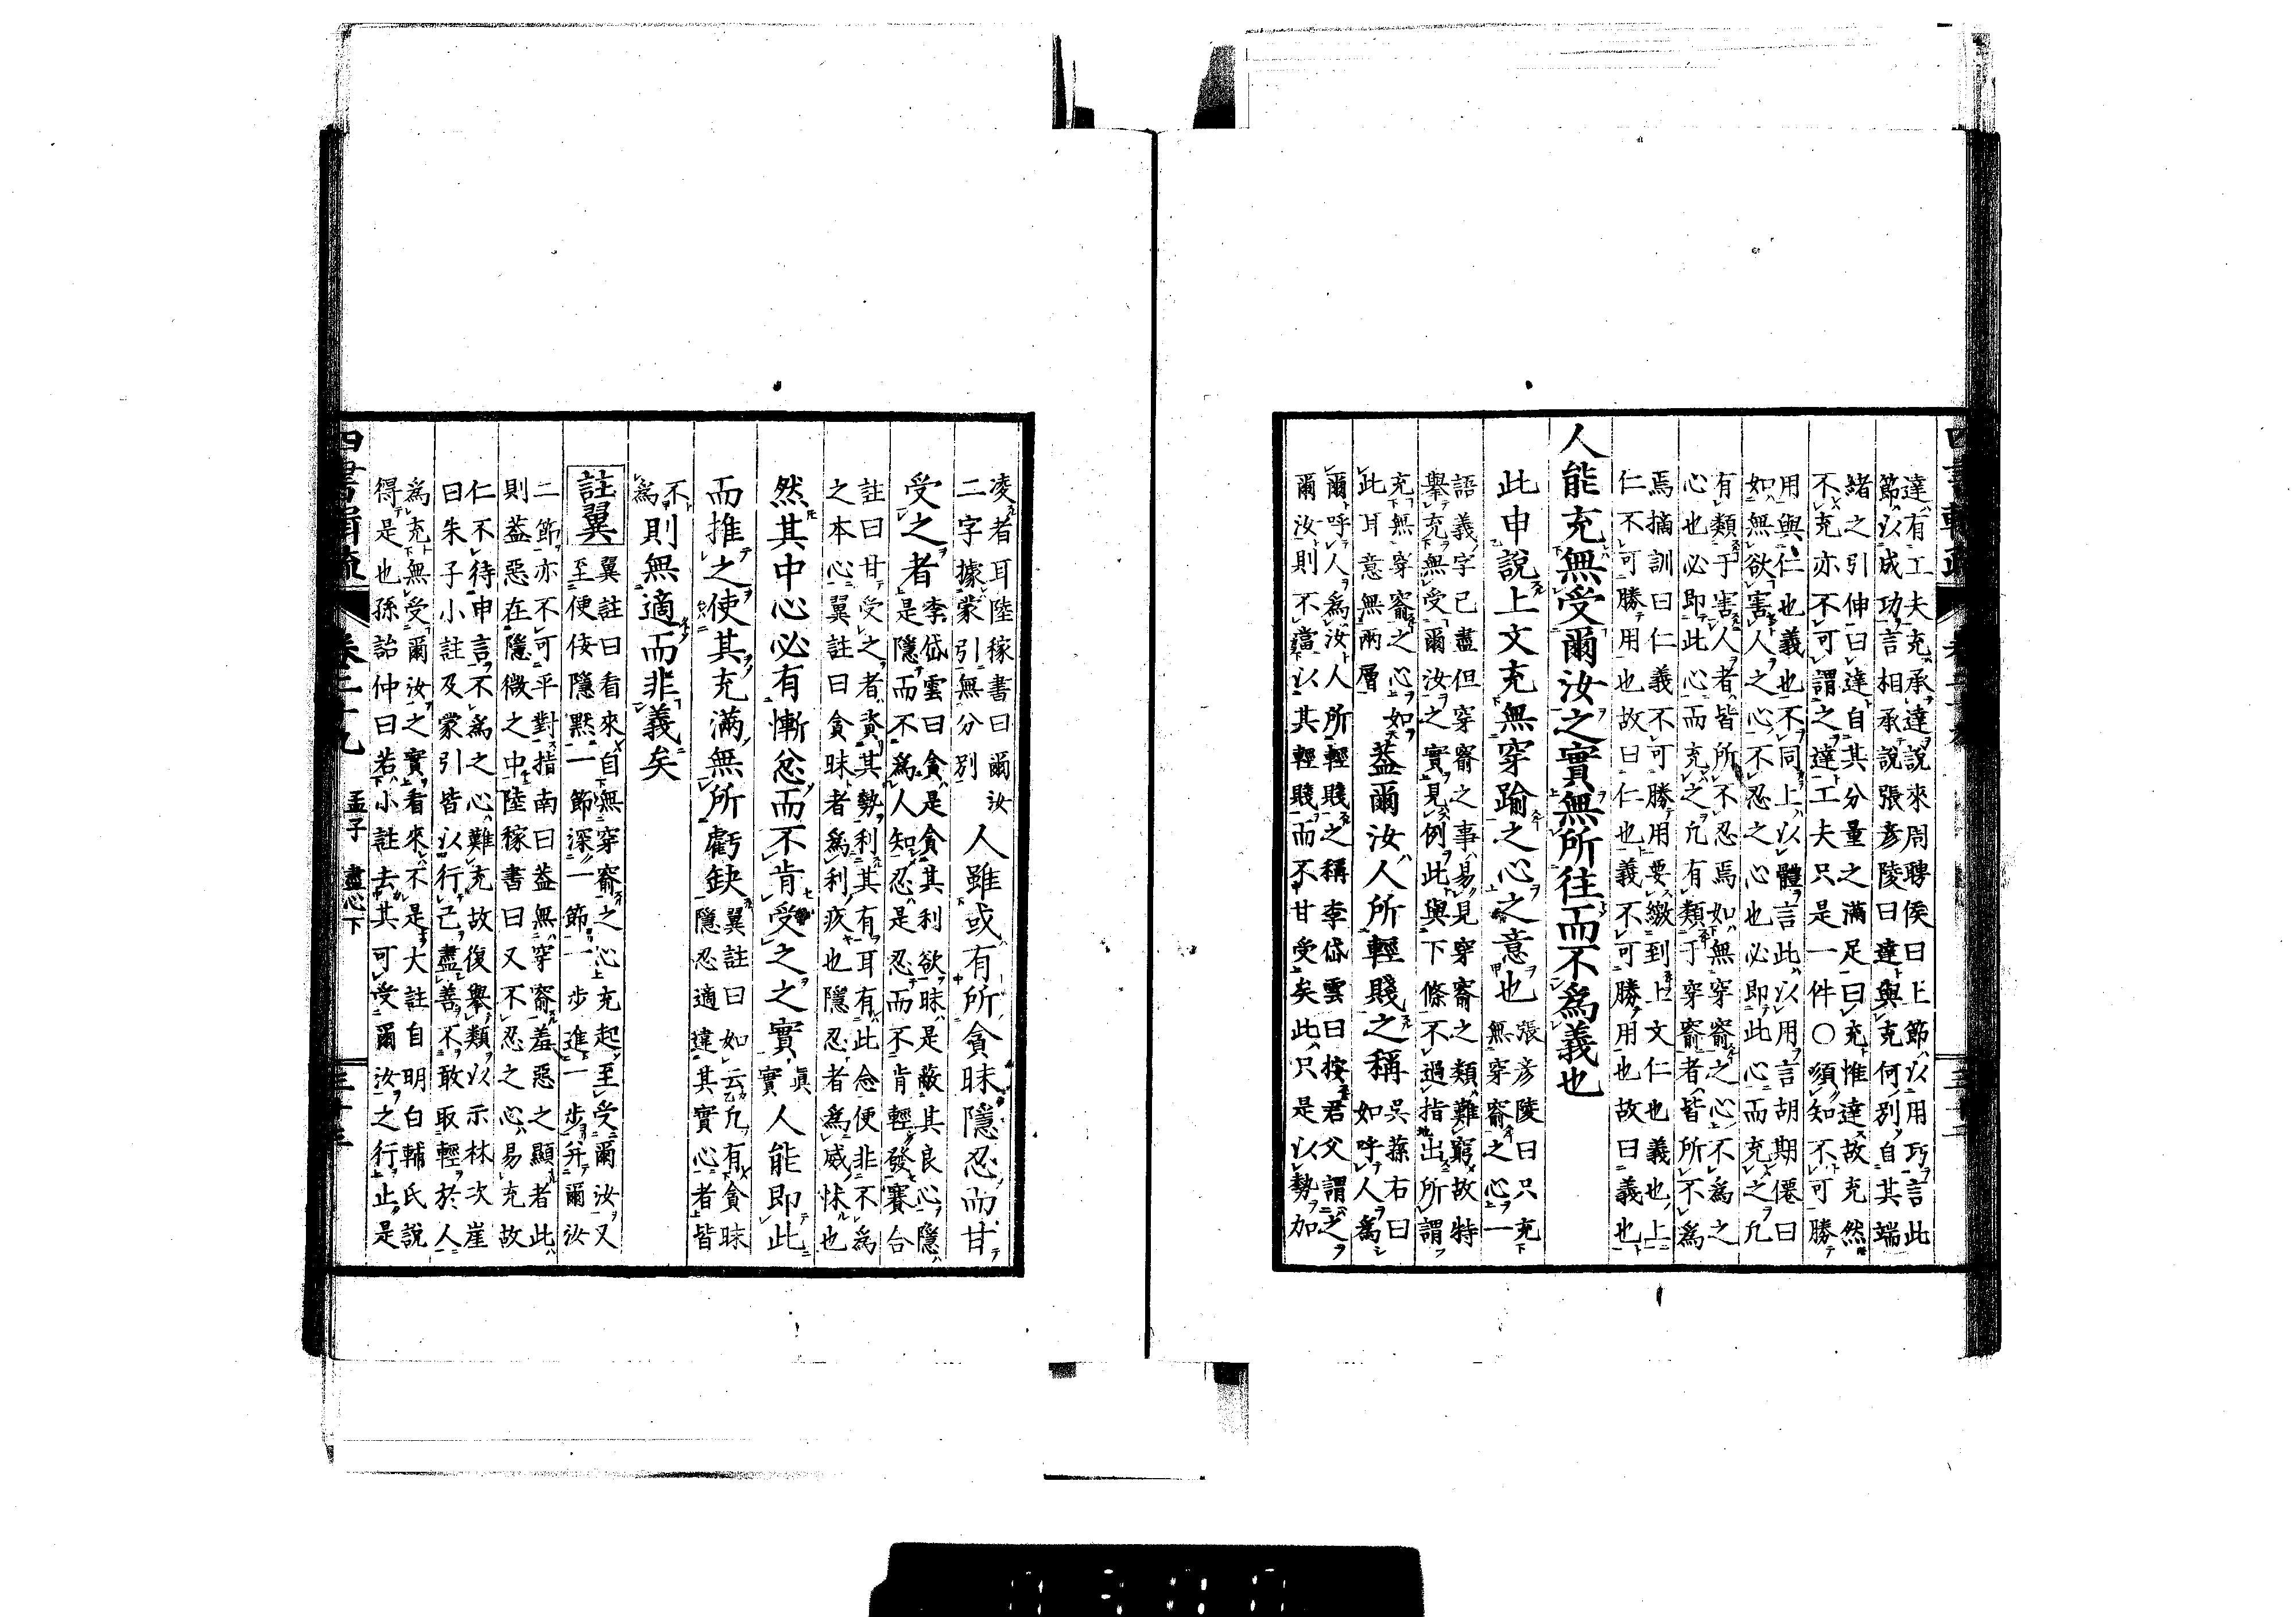 達有工夫充承達說來周聘侯曰上節以用巧言此
節以成功言相承說張彥陵曰達與充何別自其端
緒之引伸曰達自其分量之滿足曰充惟達故充然
不充亦不可謂之達工夫只是一件○須知不可勝
用與仁也義也不同上以體言此以用言胡期僊曰
如無欲害人之心不忍之心也必即此心而充之凡
有類于害人者皆所不忍焉如無穿窬之心不為之
心也必即此心而充之凡有類于穿窬者皆所不為
焉摘訓曰仁義不可勝用要繳到上文仁也義也上
仁不可勝用也故曰仁也義不可勝用也故曰義也
人能充無受爾汝之實無所往而不為義也
此申說上文充無穿踰之心之意也
張彥陵曰只充
無穿窬之心一
語義字已盡但穿窬之事易見穿窬之類難窮故特
舉充無受爾汝之實見例此與下條不過指出所謂
充無穿窬之心如
此耳意無兩層
蓋爾汝人所輕賤之稱
吳蓀右曰
如呼人為
爾呼人為汝人所輕賤之稱李岱雲曰按君父謂之
爾汝則不當以其輕賤而不甘受矣此只是以勢加
凌者耳陸稼書曰爾汝
二字據蒙引無分別
人雖或有所貪昧隱忍而甘
受之者
李岱雲曰貪是貪其利欲昧是蔽其良心隱
是隱而不為人知忍是忍而不肯輕發賽合
註曰甘受之者資其勢利其有耳有此念便非不為
之本心翼註曰貪昧者為利疚也隱忍者為威怵也
然其中心必有慚忿而不肯受之之實
真
實
人能即此
而推之使其充滿無所虧缺
翼註曰如云凡有貪昧
隱忍適違其實心者皆
不
為
則無適而非義矣
註翼
翼註曰看來自無穿窬之心充起至受爾汝又
至便佞隱默一節深一節一步進一步升爾汝
二節亦不可平對指南曰蓋無穿窬羞惡之顯者此
則蓋惡在隱微之中陸稼書曰又不忍之心易充故
仁不待申言不為之心難充故復舉類以示林次崖
曰朱子小註及蒙引皆以行己盡善不敢取輕於人
為充無受爾汝之實看來不是大註自明白輔氏說
得是也孫詒仲曰若小註去其可受爾汝之行止是
四書翼疏 卷三十九 孟子 盡心下